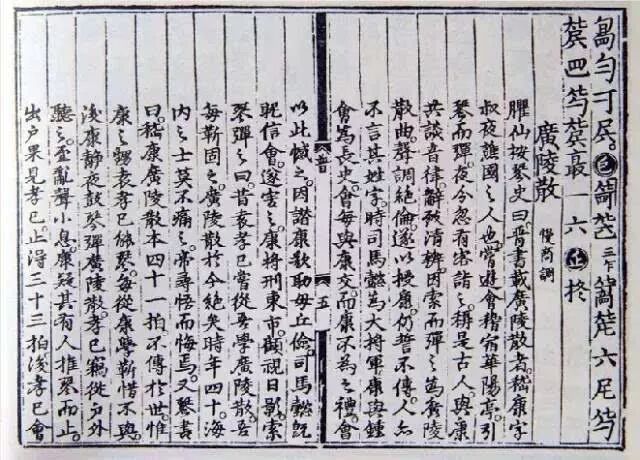 廣陵散 慢商調
臞仙按琴史曰晉書載廣陵散者嵇康字
叔夜譙國之人也嘗遊會稽宿華陽亭引
琴而彈夜今忽有客詣之稱是古人與康
共談音律辭致清辨因索而彈之為廣陵
散曲聲調絕倫遂以授康仍誓不傳人亦
不言其姓字時司馬懿為大將軍康與鍾
會為長史會每與康交而康不為之禮會
五
以此憾之因譖康欲助毋丘儉司馬懿既
昵信會遂害之康將刑東市顧視日影索
琴彈之曰昔袁孝已嘗從吾學廣陵散吾
每靳固之廣陵散於今絕矣時年四十海
內之士莫不痛之帝尋悟而悔焉又琴書
曰嵇康廣陵散本四十一拍不傳於世惟
康之甥袁孝已能琴每從康學靳惜不與
後康靜夜鼓琴彈廣陵散孝已竊從戶外
聽之至亂聲小息康疑其有人推琴而止
出戶果見孝已止得三十三拍後孝已會